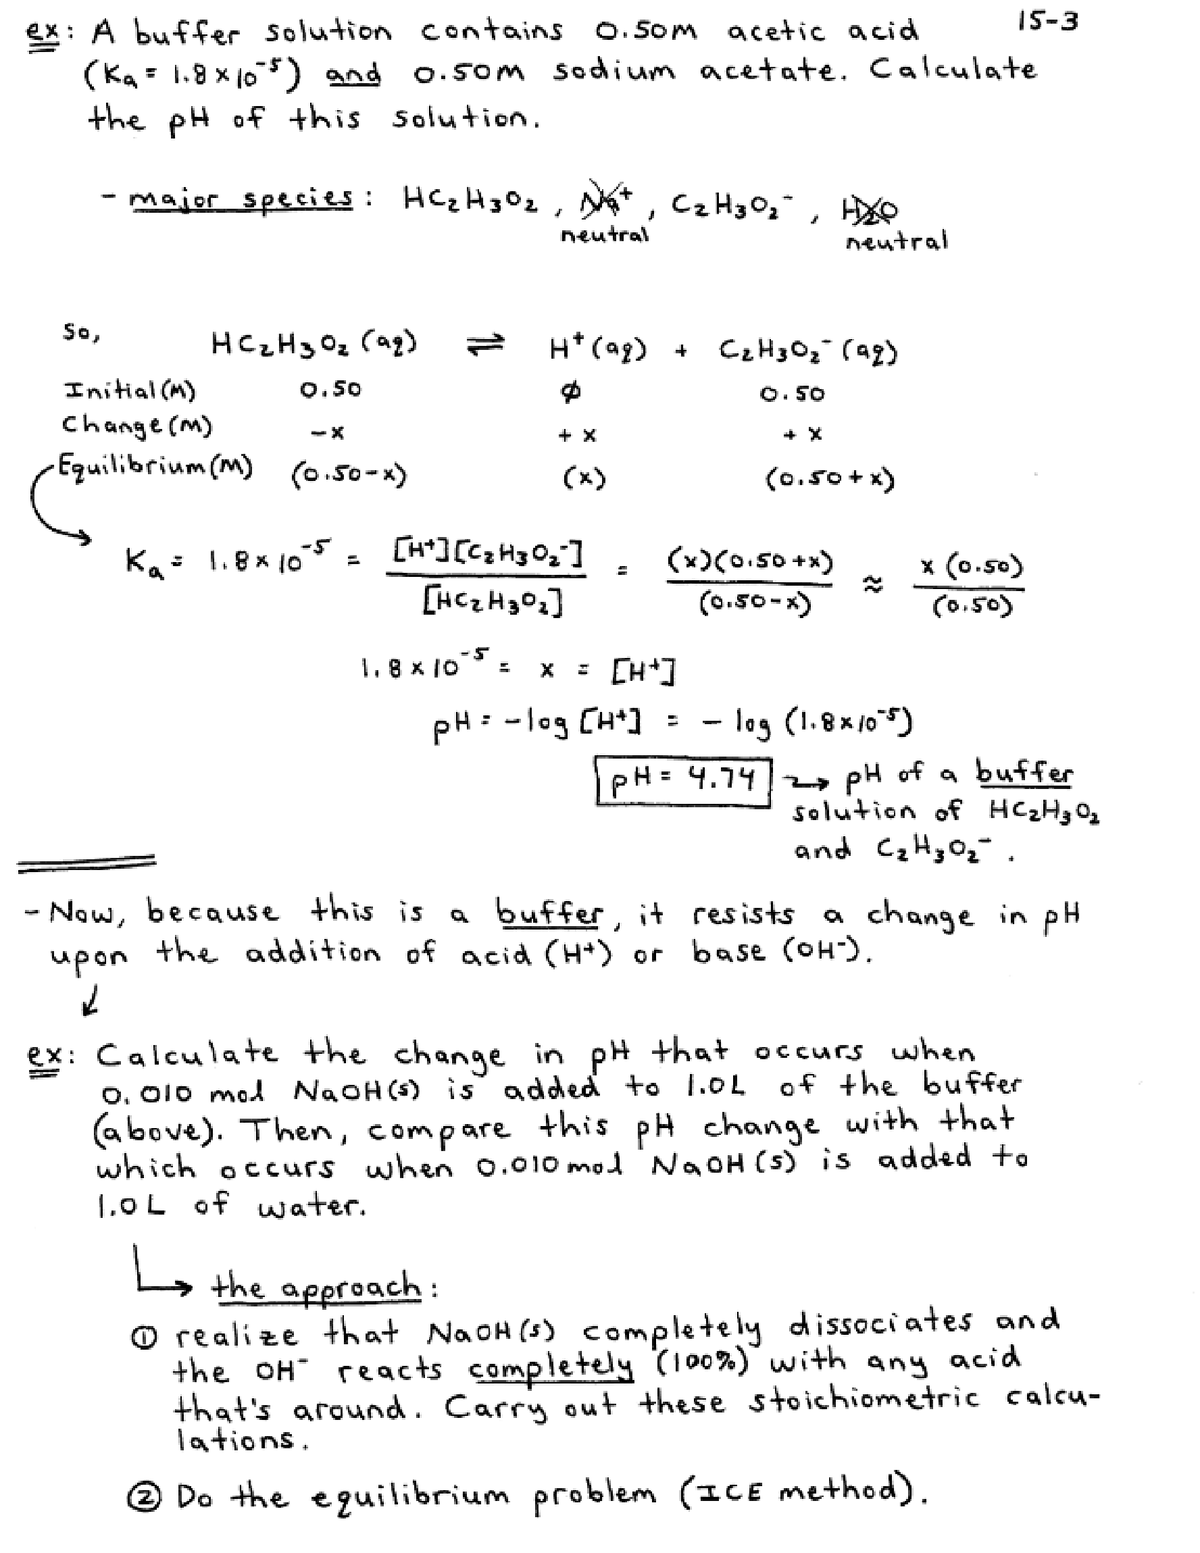 15-3
ex: A buffer solution contains 0.50M acetic acid
(Ka = 1.8×10⁻⁵) and 0.50M sodium acetate. Calculate
the pH of this solution.
- major species: HC₂H₃O₂, Na⁺, C₂H₃O₂⁻, H₂O
neutral neutral
So, HC₂H₃O₂ (aq) ⇌ H⁺(aq) + C₂H₃O₂⁻(aq)
Initial(M) 0.50 ϕ 0.50
Change(M) -x +x +x
Equilibrium(M) (0.50-x) (x) (0.50+x)
Ka = 1.8×10⁻⁵ = [H⁺][C₂H₃O₂⁻]/[HC₂H₃O₂] = (x)(0.50+x)/(0.50-x) ≈ x(0.50)/(0.50)
1.8×10⁻⁵ = x = [H⁺]
pH = -log [H⁺] = - log (1.8×10⁻⁵)
pH = 4.74 → pH of a buffer
solution of HC₂H₃O₂
and C₂H₃O₂⁻.
- Now, because this is a buffer, it resists a change in pH
upon the addition of acid (H⁺) or base (OH⁻).
ex: Calculate the change in pH that occurs when
0.010 mol NaOH(s) is added to 1.0L of the buffer
(above). Then, compare this pH change with that
which occurs when 0.010 mol NaOH(s) is added to
1.0L of water.
→ the approach:
① realize that NaOH(s) completely dissociates and
the OH⁻ reacts completely (100%) with any acid
that's around. Carry out these stoichiometric calcu-
lations.
② Do the equilibrium problem (ICE method).